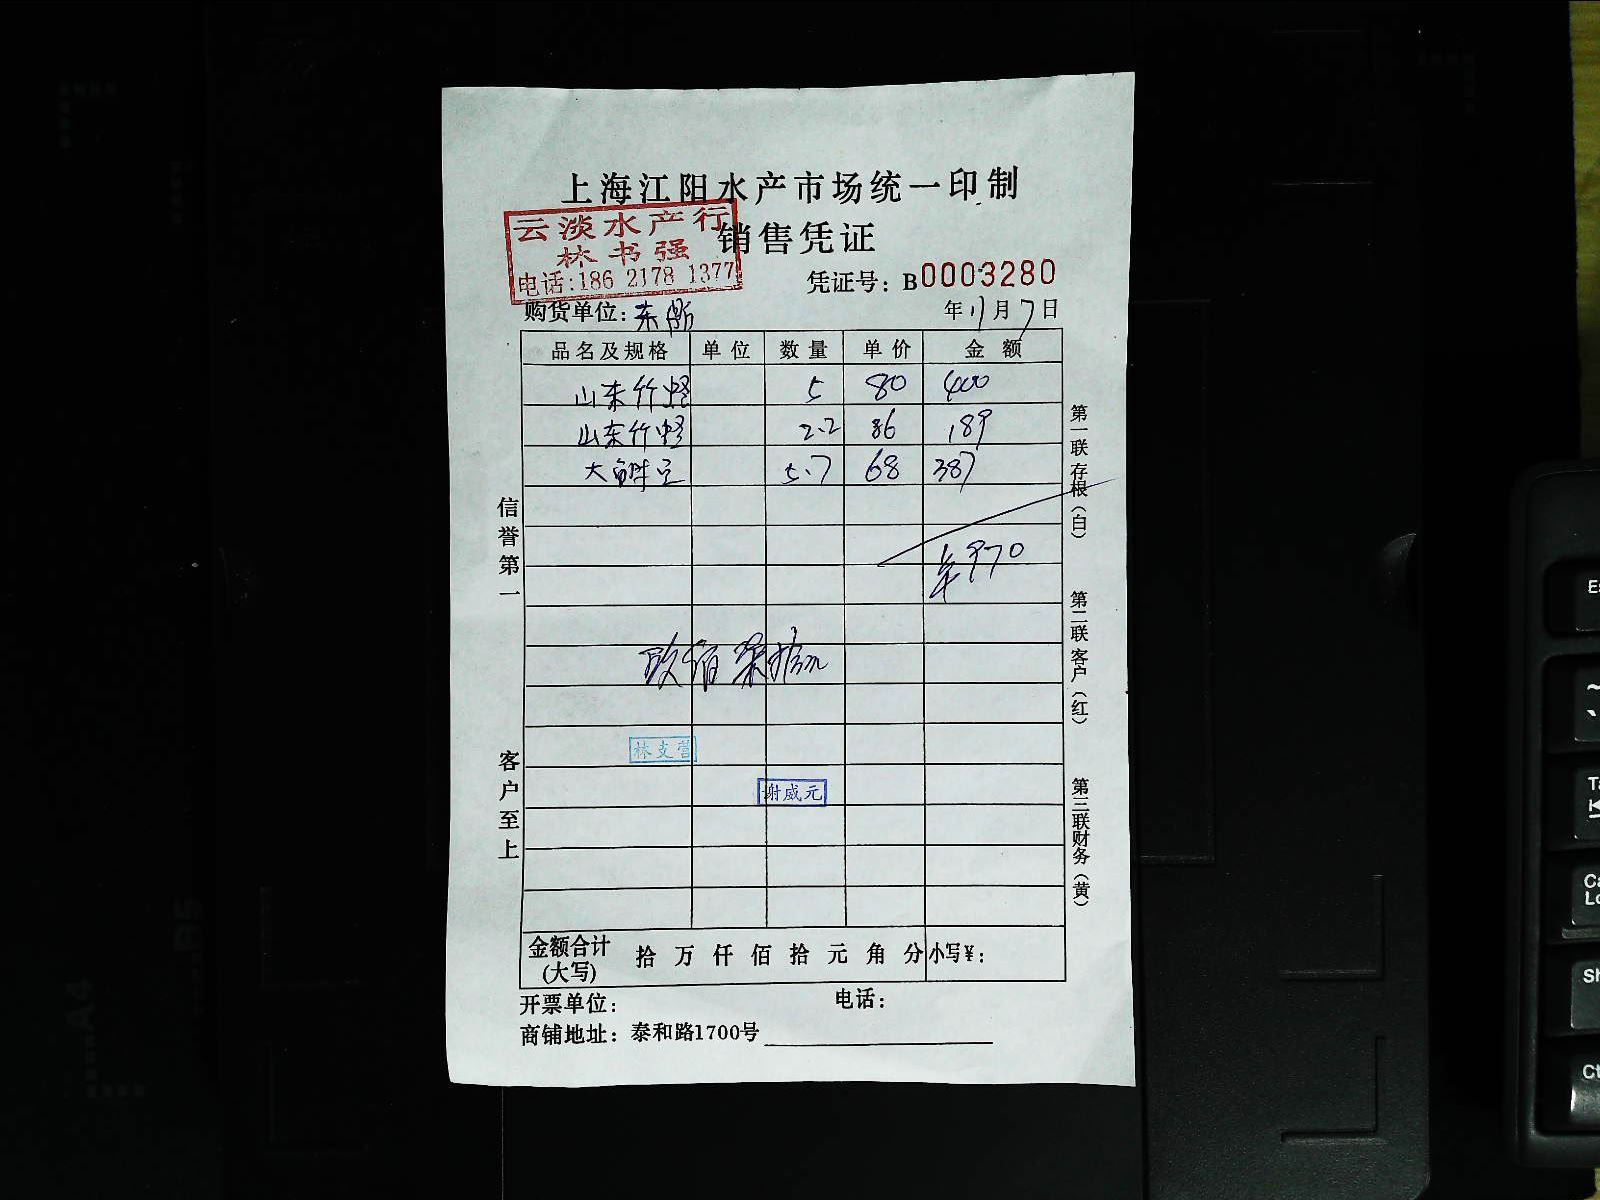 上海江阳水产市场统一印制
销售凭证
云淡水产行
林书强
电话:186 2178 1377
凭证号: B0003280
购货单位:
年 11 月 7 日
品名及规格 单位 数量 单价 金额
山东竹蛏 5 80 400
山东竹蛏 2.2 86 189
大 5.7 68 387
¥970
玖佰柒拾元
林支营
谢威元
金额合计(大写) 拾 万 仟 佰 拾 元 角 分 小写¥:
开票单位: 电话:
商铺地址: 泰和路1700号
信誉第一
客户至上
第一联存根(白)
第二联客户(红)
第三联财务(黄)
Es
~
`
Ta
Ca
Lo
Sh
Ct